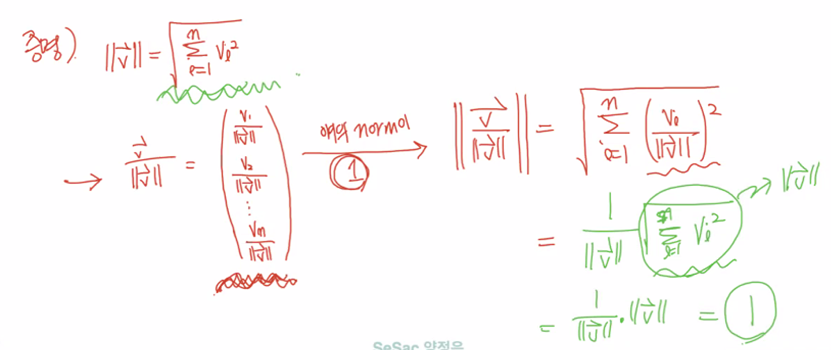 증명) ||v⃗|| = √(∑_{i=1}^{n} v_i²)
→ v⃗/||v⃗|| = (v₁/||v⃗||, v₂/||v⃗||, ⋯, vₙ/||v⃗||)
얘의 norm이 ①
||v⃗/||v⃗|||| = √(∑_{i=1}^{n} (v_i/||v⃗||)²)
= 1/||v⃗|| √(∑_{i=1}^{n} v_i²) → ||v⃗||
= 1/||v⃗|| · ||v⃗|| = ①
SeSac